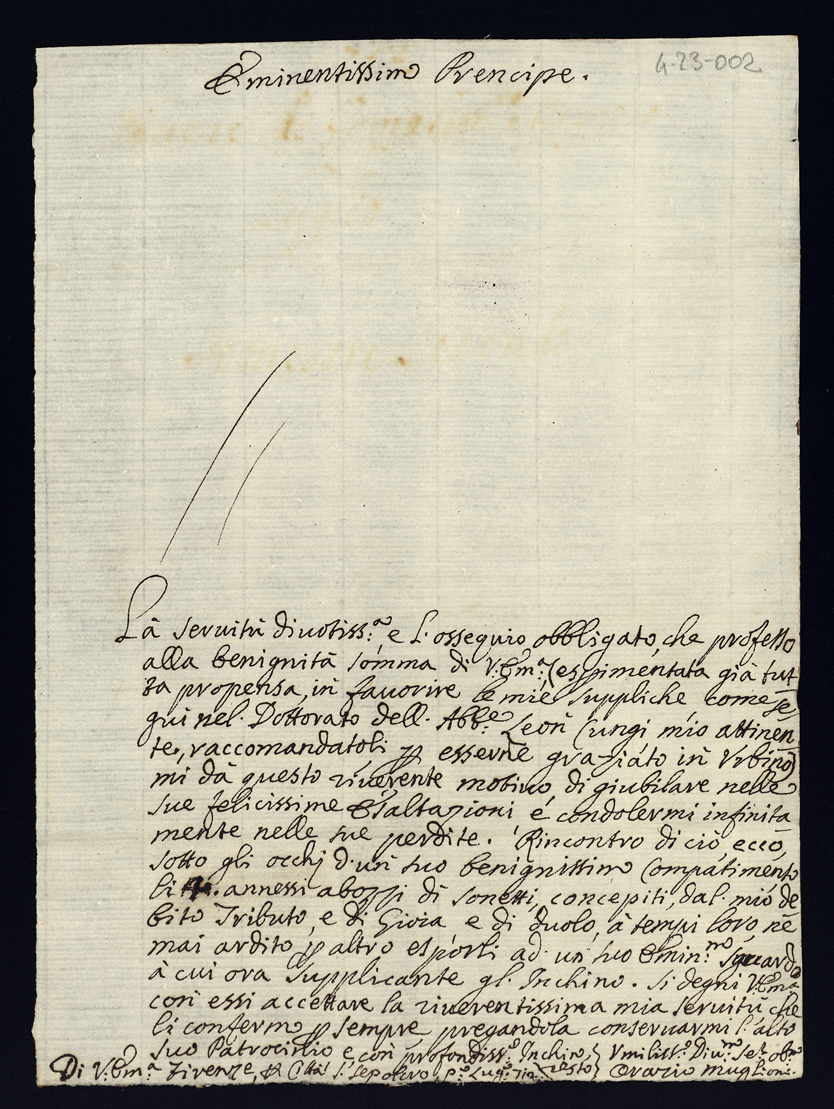 4-23-002
Eminentissimo Prencipe.
La seruitù diuotiss.ª e l'ossequio obbligato, che professo
alla benignità somma di V.Em.ª (esperimentata già tut
ta propensa, in fauorire le mie suppliche, come se
guì nel Dottorato dell Abb.e Leon Cungi mio attinen
te, raccomandatoli p esserne graziato in Vrbino)
mi dà questo riuerente motiuo di giubilare nelle
sue felicissime Esaltazioni e condolermi infinita
mente nelle sue perdite. Rincontro di ciò ecco,
sotto gli occhj d'un suo benignissimo Compatimento
li annessi abozzi di Sonetti, concepiti, dal mio de
bito Tributo, e di Gioia e di duolo, à tempi loro, nè
mai ardito p altro esporli ad un suo Emin.mo Sguardo
à cui ora supplicante gl'Inchino. Si degni V.Em.ª
con essi accettare la riuerentissima mia seruitù che
li confermo p sempre pregandola conseruarmi l'alto
suo Patrocinio e con profondiss.o Inchino
Vmiliss.o Diu.mo Se.r ob.mo
Di V.Em.ª Firenze, Città S. Sepolcro
Orazio